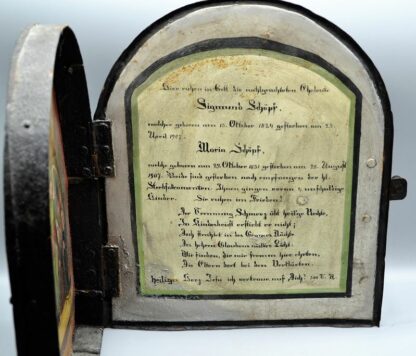 Hier ruhen in Gott die wohlgeachteten Eheleute
Sigmund Schöpf,
welcher geboren am 15. Oktober 1824 gestorben am 22.
April 1907.
Maria Schöpf,
welche geboren am 29. Oktober 1831 gestorben am 28. August
1907. Beide sind gestorben nach empfangen der hl.
Sterbsakramenten. Ihnen gingen voran unschuldige
Kinder. Sie ruhen im Frieden!
Der Trennung Schmerz übt heilige Rechte,
Im Kinderherzt erstirbt er nicht;
Doch strahlt in des Grames Nächte
Des hohen Glaubens Licht:
Wir finden, die wir fromm hier ehrten,
Die Eltern dort bei den Verklärten.
Heiliges Herz Jesu ich vertraue auf Dich! 300 T. A.